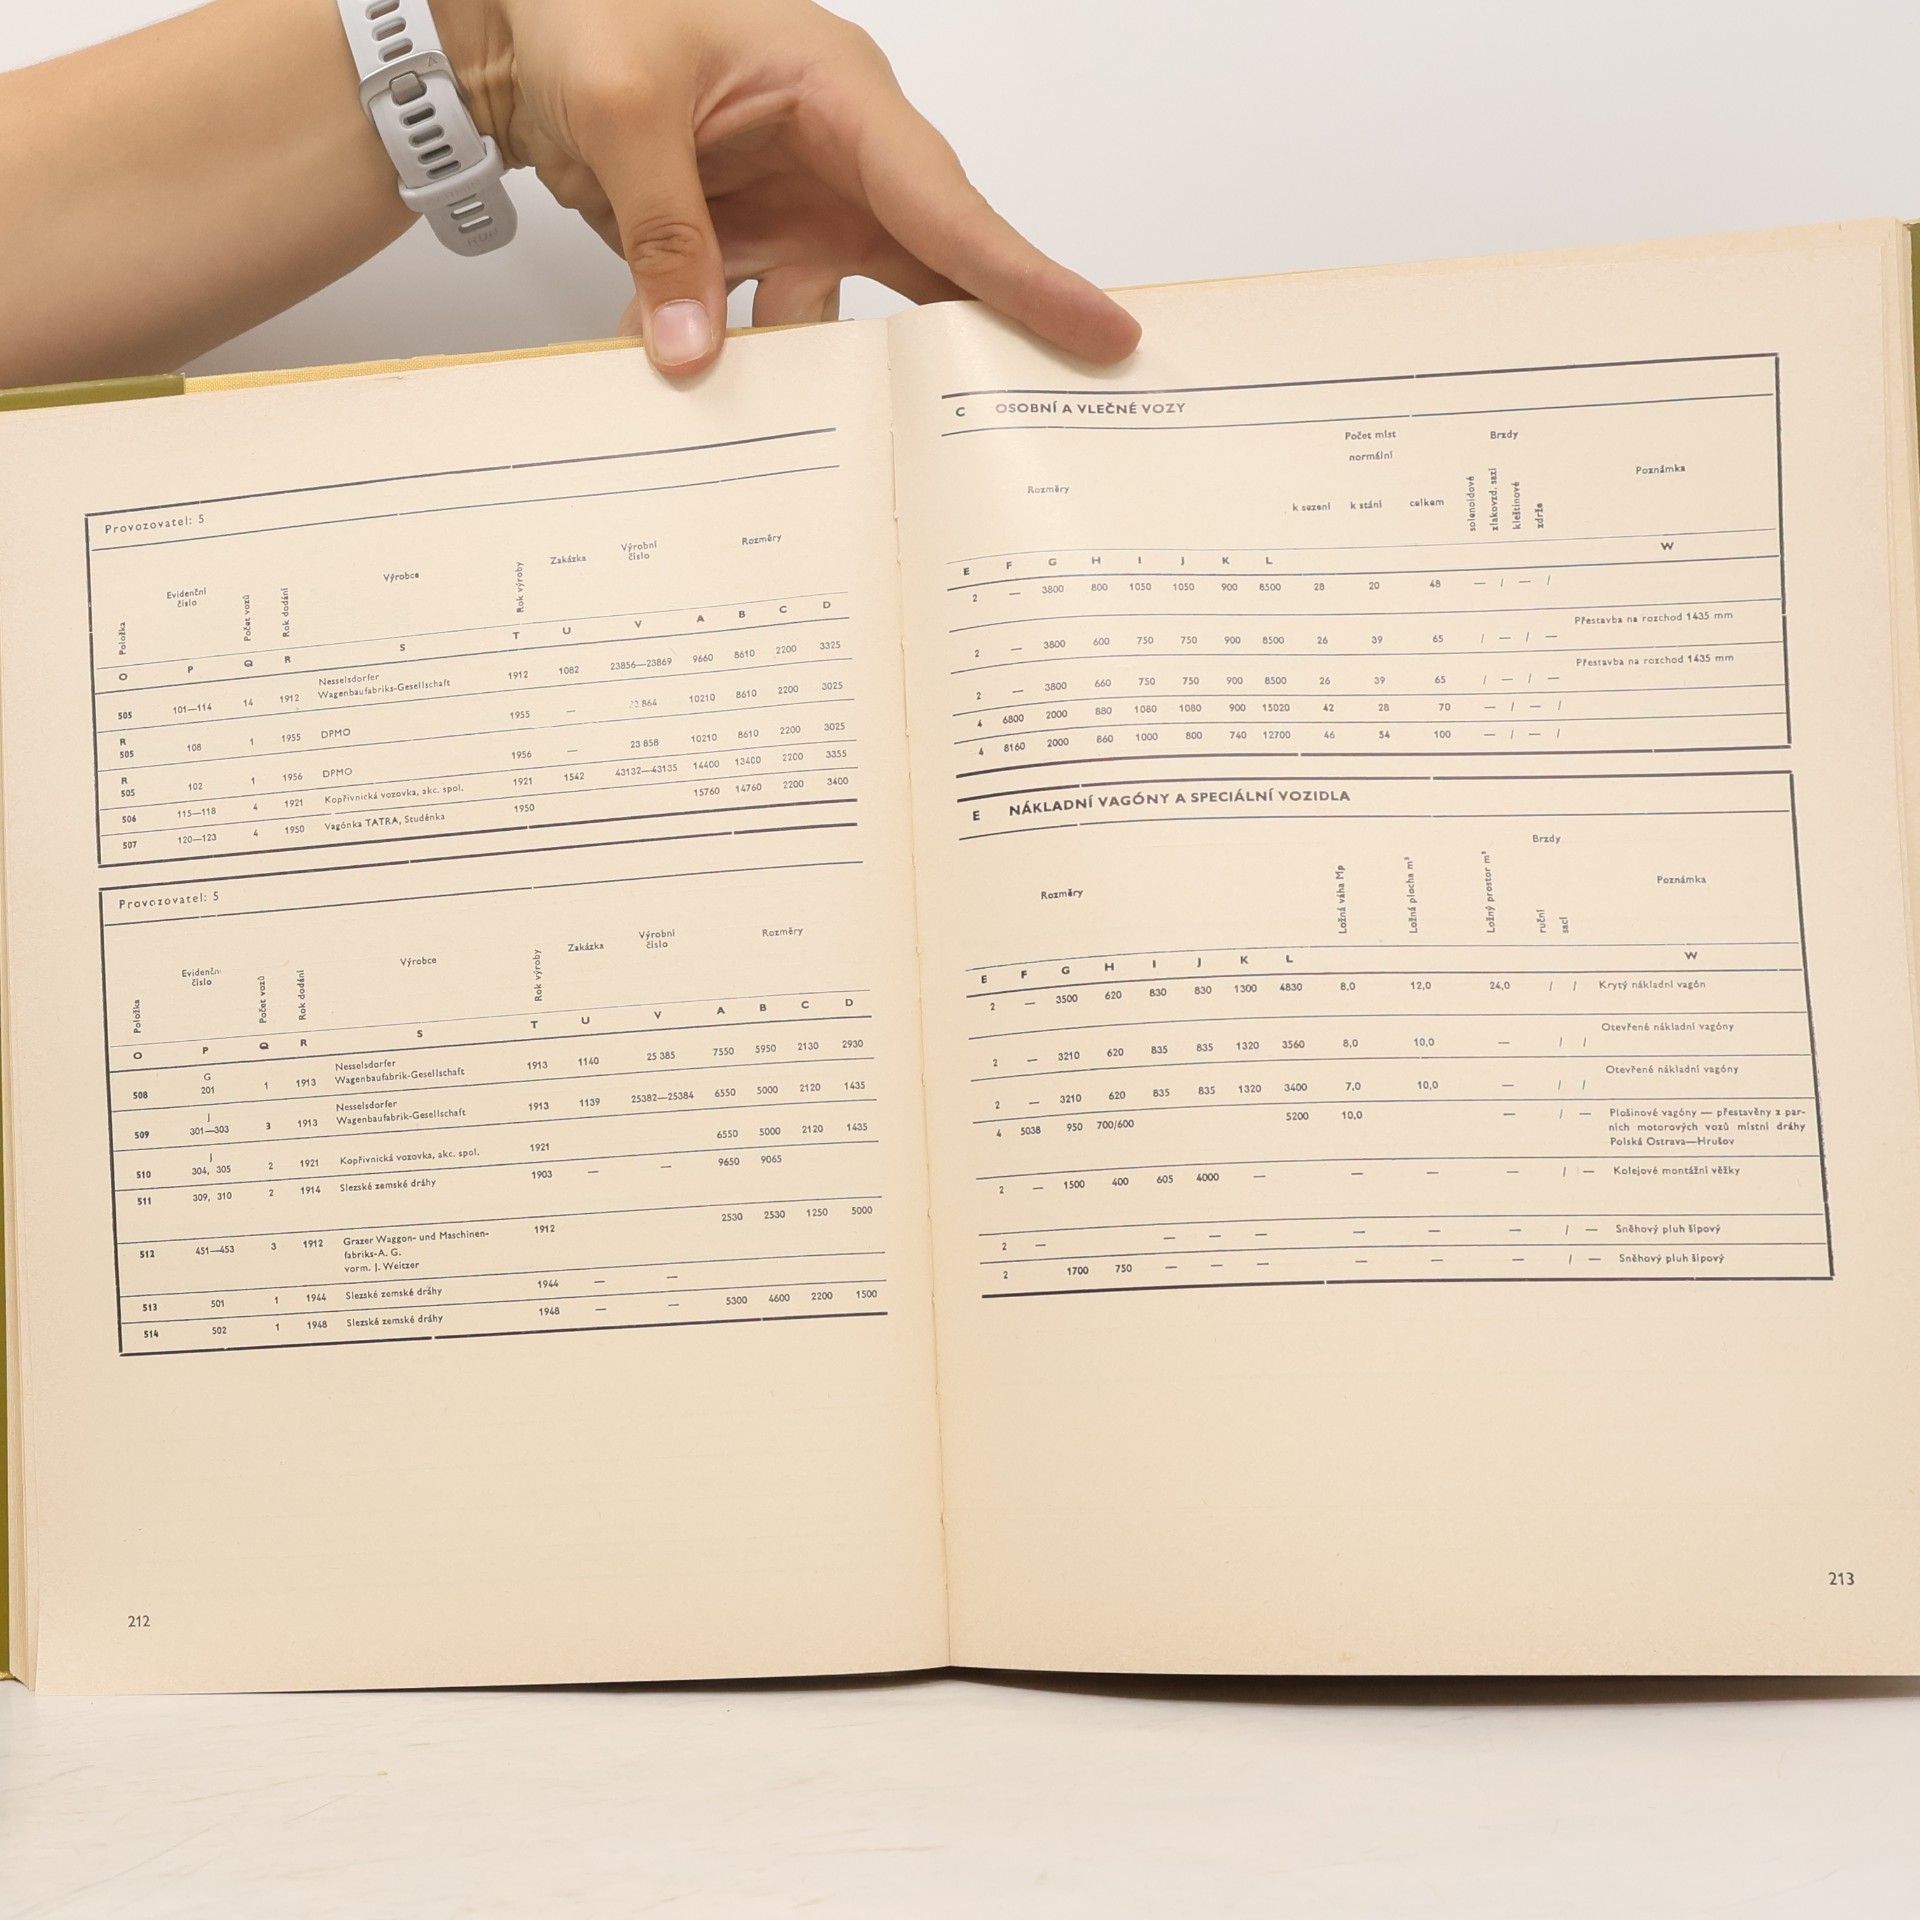 Provozovatel: 5
Položka
Evidenční číslo
Počet vozů
Rok dodání
Výrobce
Rok výroby
Zakázka
Výrobní číslo
Rozměry
O P Q R S T U V A B C D
505 101—114 14 1912 Nesselsdorfer Wagenbaufabriks-Gesellschaft 1912 1082 23856—23869 9660 8610 2200 3325
R 505 108 1 1955 DPMO 1955 — 864 10210 8610 2200 3025
R 505 102 1 1956 DPMO 1956 — 23 858 10210 8610 2200 3025
506 115—118 4 1921 Kopřivnická vozovka, akc. spol. 1921 1542 43132—43135 14400 13400 2200 3355
507 120—123 4 1950 Vagónka TATRA, Studénka 1950 15760 14760 2200 3400
Provozovatel: 5
Položka
Evidenčn
číslo
Počet vozů
Rok dodání
Výrobce
Rok výroby
Zakázka
Výrobní číslo
Rozměry
O P Q R S T U V A B C D
508 G 201 1 1913 Nesselsdorfer Wagenbaufabrik-Gesellschaft 1913 1140 25 385 7550 5950 2130 2930
509 J 301—303 3 1913 Nesselsdorfer Wagenbaufabrik-Gesellschaft 1913 1139 25382—25384 6550 5000 2120 1435
510 J 304, 305 2 1921 Kopřivnická vozovka, akc. spol. 1921 6550 5000 2120 1435
511 309, 310 2 1914 Slezské zemské dráhy 1903 — — 9650 9065
512 451—453 3 1912 Grazer Waggon- und Maschinen-
fabriks-A. G.
vorm. J. Weitzer 1912 2530 2530 1250 5000
513 501 1 1944 Slezské zemské dráhy 1944 — —
514 502 1 1948 Slezské zemské dráhy 1948 — — 5300 4600 2200 1500
212
C OSOBNÍ A VLEČNÉ VOZY
Rozměry
Počet míst
normální
k sezení k stání celkem
Brzdy
solenoidové
zlakovzd. sací
kleštinové
zdrže
Poznámka
E F G H I J K L W
2 — 3800 800 1050 1050 900 8500 28 20 48 — / — /
2 — 3800 600 750 750 900 8500 26 39 65 / — / — Přestavba na rozchod 1435 mm
2 — 3800 660 750 750 900 8500 26 39 65 / — / — Přestavba na rozchod 1435 mm
4 6800 2000 880 1080 1080 900 15020 42 28 70 — / — /
4 8160 2000 860 1000 800 740 12700 46 54 100 — / — /
E NÁKLADNÍ VAGÓNY A SPECIÁLNÍ VOZIDLA
Rozměry
Ložná váha Mp
Ložná plocha m²
Ložný prostor m³
Brzdy
ruční
sací
Poznámka
E F G H I J K L W
2 — 3500 620 830 830 1300 4830 8,0 12,0 24,0 / / Krytý nákladní vagón
2 — 3210 620 835 835 1320 3560 8,0 10,0 — / / Otevřené nákladní vagóny
2 — 3210 620 835 835 1320 3400 7,0 10,0 — / / Otevřené nákladní vagóny
4 5038 950 700/600 5200 10,0 — / — Plošinové vagóny — přestavěny z par-
ních motorových vozů místní dráhy
Polská Ostrava—Hrušov
2 — 1500 400 605 4000 — — — — / — Kolejové montážní věžky
2 — — — — — — — / — Sněhový pluh šípový
2 1700 750 — — — — — — / — Sněhový pluh šípový
213